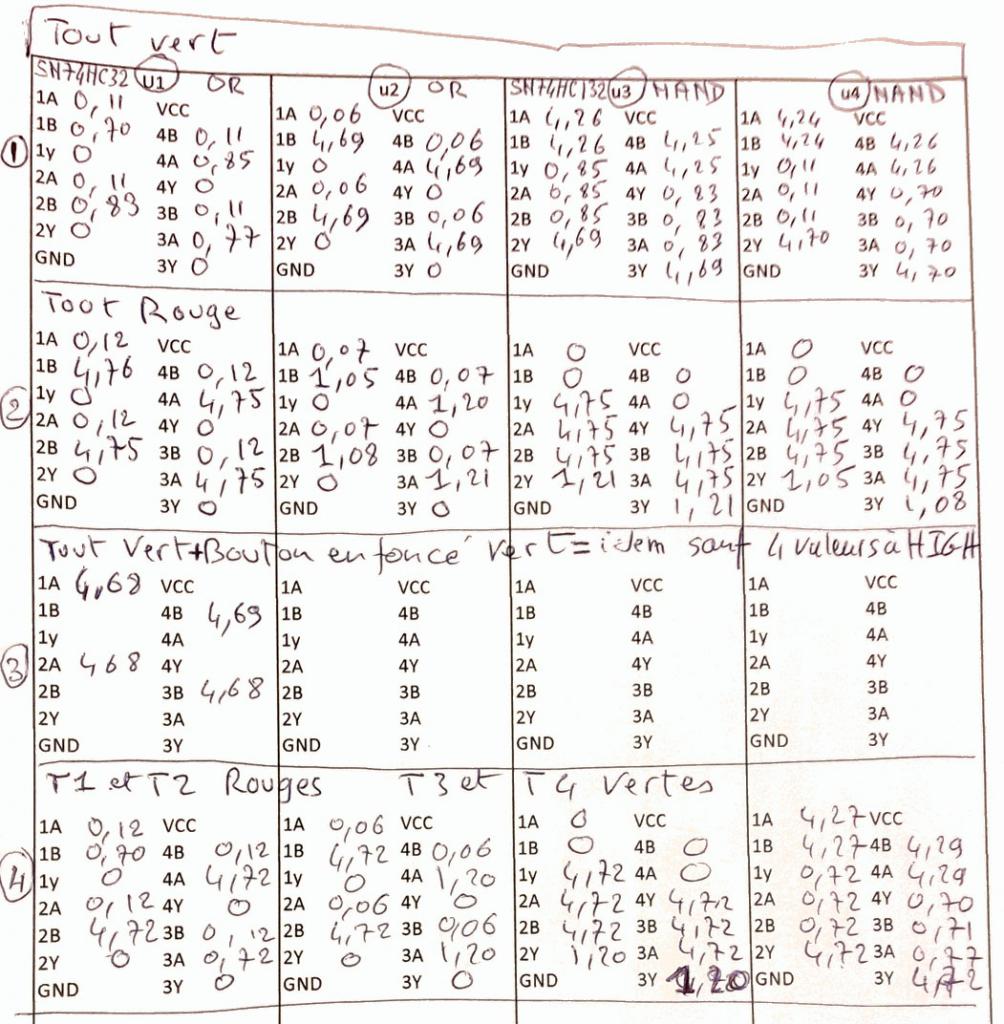 Tout vert
SN74HC32 u1 OR u2 OR SN74HC132 u3 NAND u4 NAND
1A 0,11 VCC 1A 0,06 VCC 1A 4,26 VCC 1A 4,24 VCC
1B 0,70 4B 0,11 1B 4,69 4B 0,06 1B 4,26 4B 4,25 1B 4,24 4B 4,26
1 1y 0 4A 0,85 1y 0 4A 4,69 1y 0,85 4A 4,25 1y 0,11 4A 4,26
2A 0,11 4Y 0 2A 0,06 4Y 0 2A 0,85 4Y 0,83 2A 0,11 4Y 0,70
2B 0,83 3B 0,11 2B 4,69 3B 0,06 2B 0,85 3B 0,83 2B 0,11 3B 0,70
2Y 0 3A 0,77 2Y 0 3A 4,69 2Y 4,69 3A 0,83 2Y 4,70 3A 0,70
GND 3Y 0 GND 3Y 0 GND 3Y 4,69 GND 3Y 4,70
Tout Rouge
1A 0,12 VCC 1A 0,07 VCC 1A 0 VCC 1A 0 VCC
1B 4,76 4B 0,12 1B 1,05 4B 0,07 1B 0 4B 0 1B 0 4B 0
2 1y 0 4A 4,75 1y 0 4A 1,20 1y 4,75 4A 0 1y 4,75 4A 0
2A 0,12 4Y 0 2A 0,07 4Y 0 2A 4,75 4Y 4,75 2A 4,75 4Y 4,75
2B 4,75 3B 0,12 2B 1,08 3B 0,07 2B 4,75 3B 4,75 2B 4,75 3B 4,75
2Y 0 3A 4,75 2Y 0 3A 1,21 2Y 1,21 3A 4,75 2Y 1,05 3A 4,75
GND 3Y 0 GND 3Y 0 GND 3Y 1,21 GND 3Y 1,08
Tout Vert+Bouton enfoncé vert=idem sauf 4 valeurs à HIGH
1A 4,68 VCC 1A VCC 1A VCC 1A VCC
1B 4B 4,69 1B 4B 1B 4B 1B 4B
1y 4A 1y 4A 1y 4A 1y 4A
3 2A 4 68 4Y 2A 4Y 2A 4Y 2A 4Y
2B 3B 4,68 2B 3B 2B 3B 2B 3B
2Y 3A 2Y 3A 2Y 3A 2Y 3A
GND 3Y GND 3Y GND 3Y GND 3Y
T1 et T2 Rouges T3 et T4 Vertes
1A 0,12 VCC 1A 0,06 VCC 1A 0 VCC 1A 4,27 VCC
1B 0,70 4B 0,12 1B 4,72 4B 0,06 1B 0 4B 0 1B 4,27 4B 4,29
4 1y 0 4A 4,72 1y 0 4A 1,20 1y 4,72 4A 0 1y 0,72 4A 4,29
2A 0,12 4Y 0 2A 0,06 4Y 0 2A 4,72 4Y 4,72 2A 0,72 4Y 0,70
2B 4,72 3B 0,12 2B 4,72 3B 0,06 2B 4,72 3B 4,72 2B 0,72 3B 0,71
2Y 0 3A 0,72 2Y 0 3A 1,20 2Y 1,20 3A 4,72 2Y 4,72 3A 0,77
GND 3Y 0 GND 3Y 0 GND 3Y 1,20 GND 3Y 4,72